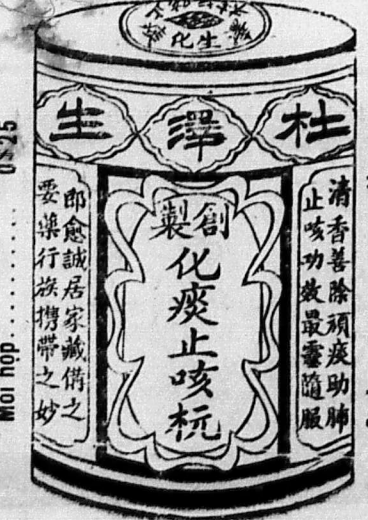 杜澤生
清香善除頑痰助肺
止咳功效最靈隨服
創製
化痰止咳杬
即愈誠居家藏備之
要藥行旅攜帶之妙
Mỗi hộp ........ 0$25